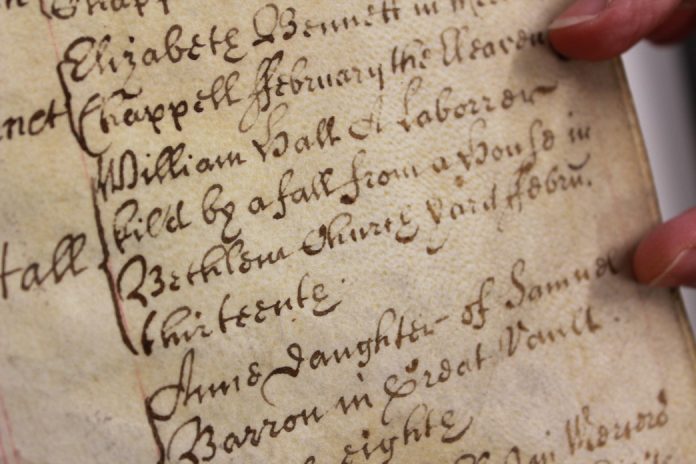 Elizabeth Bennett in
Chappell ffebruary the Eleaven
William Hall A Laborrer
kild by a fall from a House in
Hall
Bethlem Church yard ffebru.
thirteenth.
Anne daughter of Samuel
Barron in Great Vault.
eighth